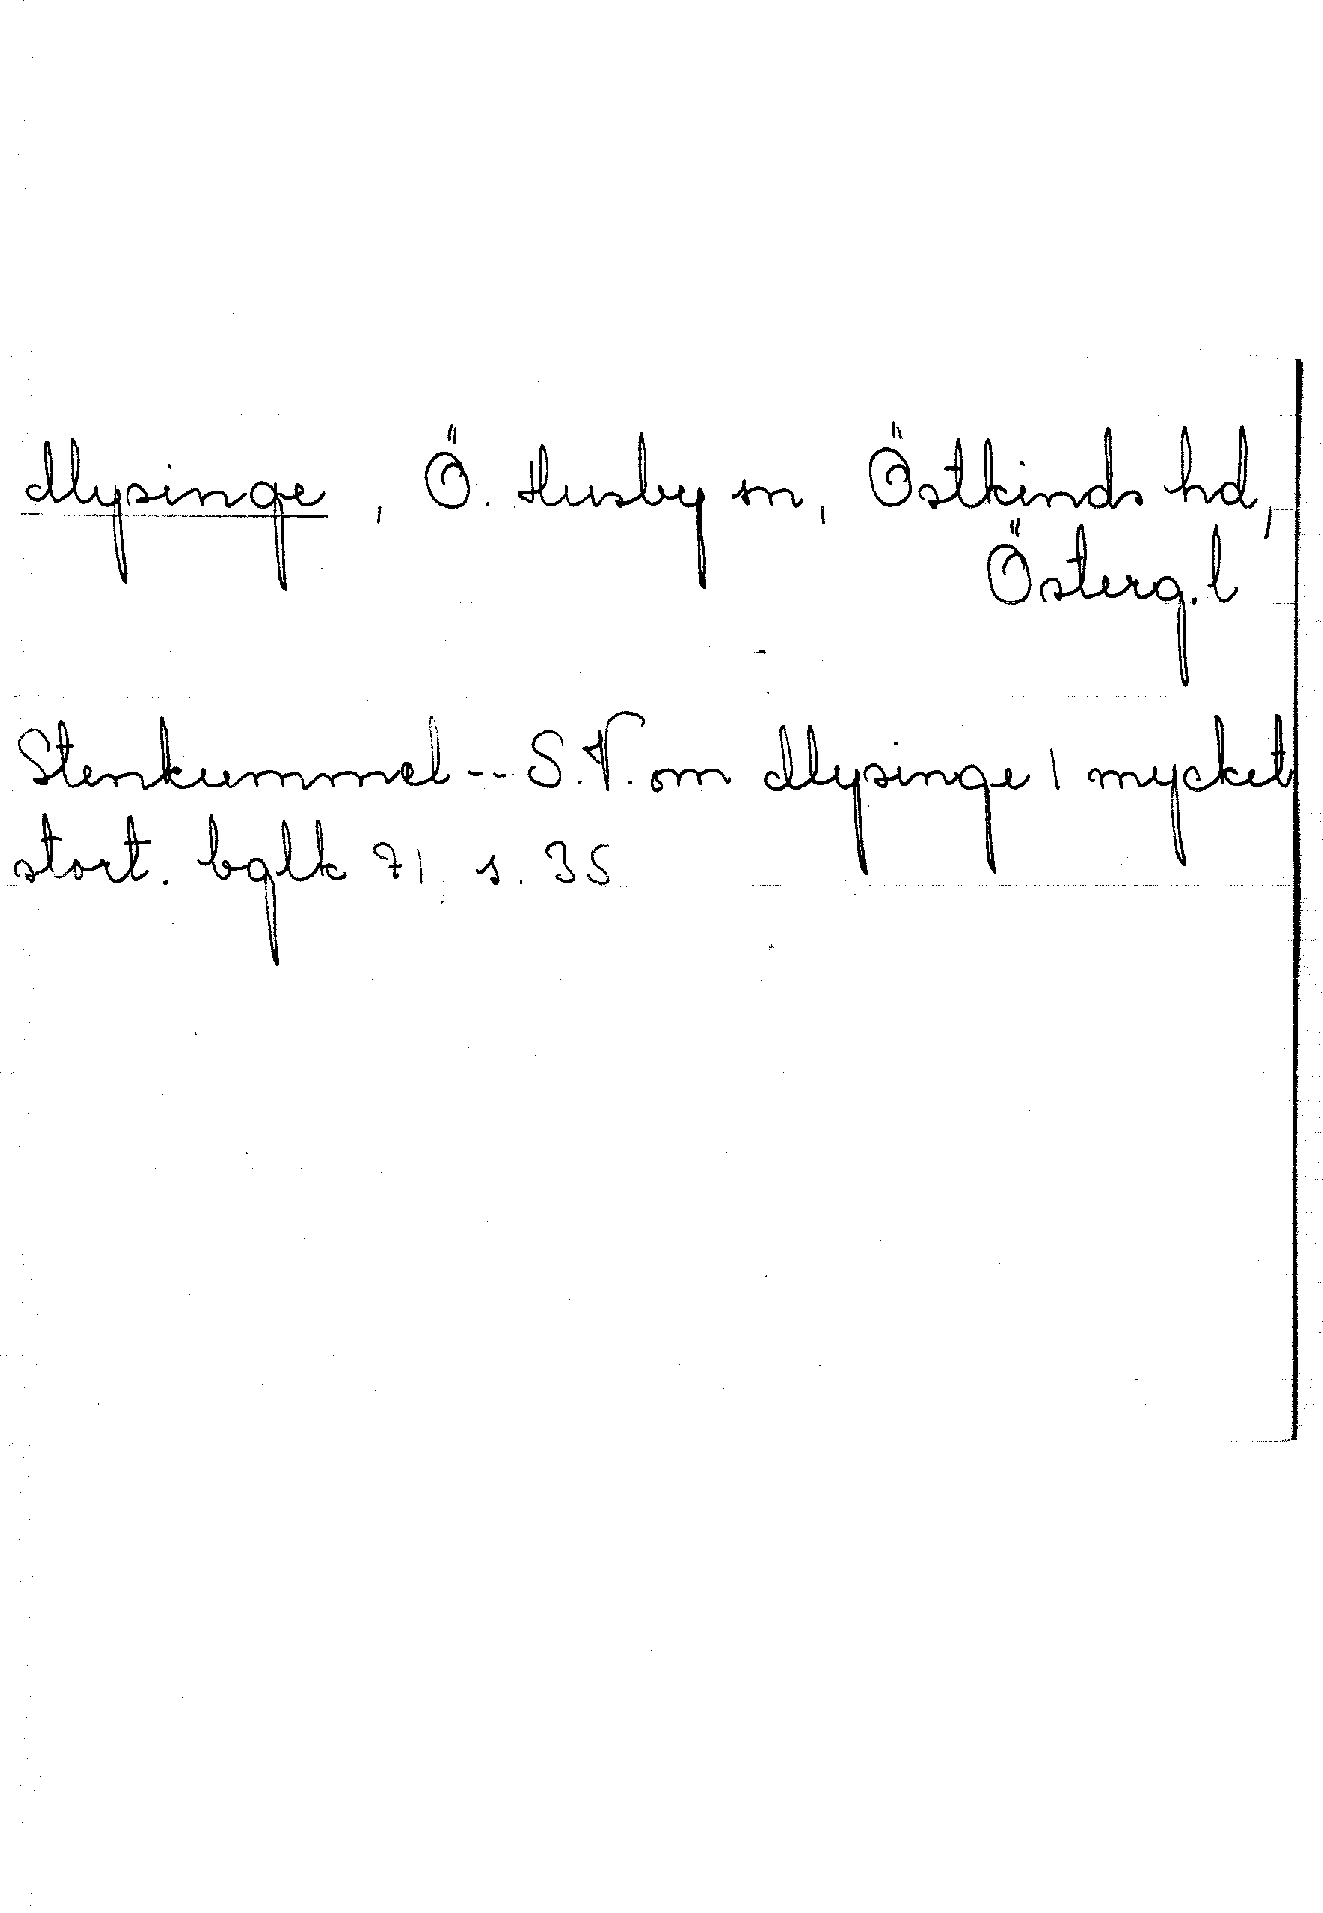 Mysinge, Ö. Husby sn, Östkinds hd,
Österg. l
Stenkummel -- S.V. om Mysinge, mycket
stort. bglk 71, s. 35